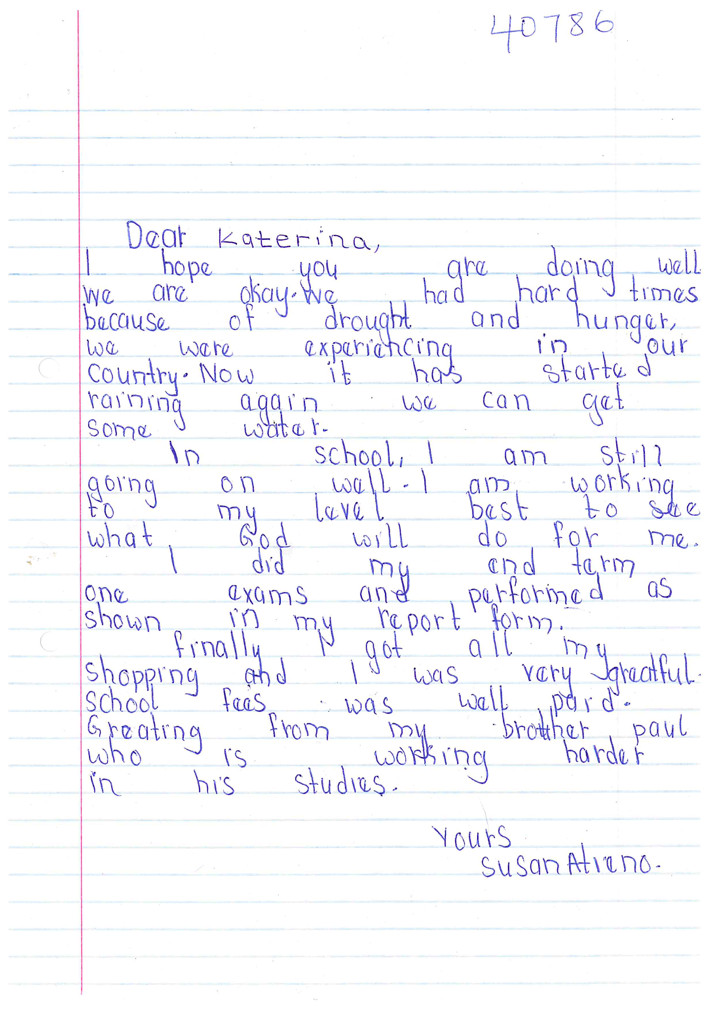 40786
Dear Katerina,
I hope you are doing well
we are okay. We had hard times
because of drought and hunger,
we were experiencing in our
country. Now it has started
raining again we can get
some water.
In school, I am still
going on well. I am working
to my level best to see
what God will do for me.
I did my end term
one exams and performed as
shown in my report form.
Finally I got all my
shopping and I was very greatful.
School fees was well paid.
Greating from my brother paul
who is working harder
in his studies.
Yours
Susan Atieno.